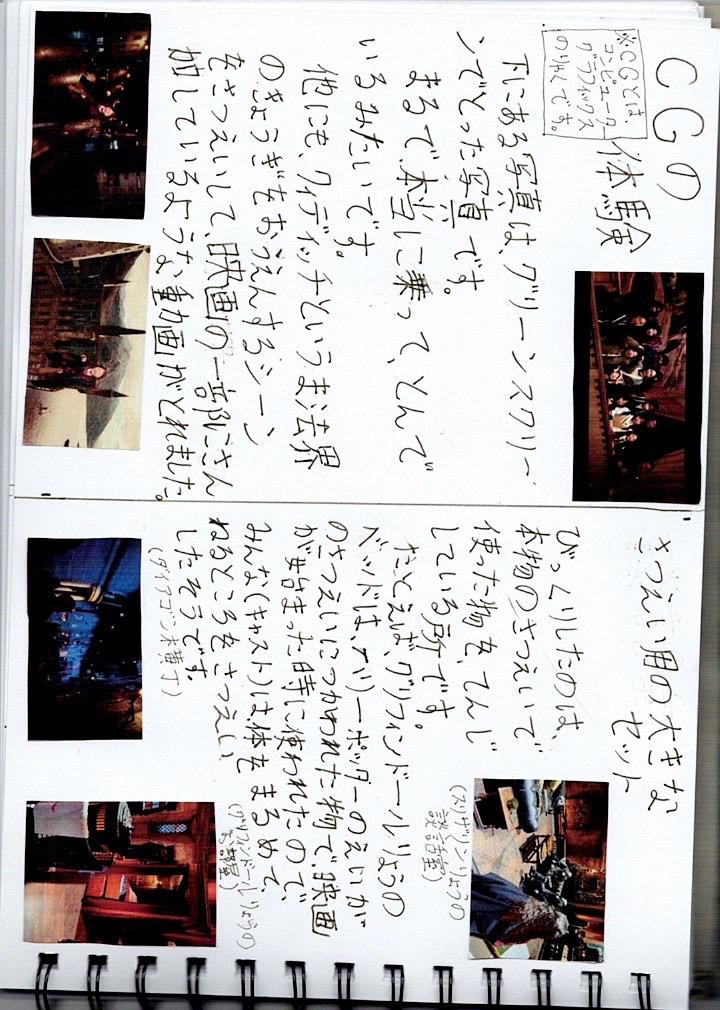 CGの体験
※CGとは
コンピューター
グラフィックス
のりゃくです。
下にある写真は、グリーンスクリー
ンでとった写真です。
まるで本当に乗って、とんで
いるみたいです。
他にも、クィディッチという魔法界
のきょうぎをおうえんするシーン
をさつえいして、映画の一部にさん
加しているような動画がとれました。
さつえい用の大きな
セット
びっくりしたのは、
本物のさつえいで
使った物を、てんじ
している所です。
たとえば、グリフィンドールりょうの
ベッドは、ハリーポッターのえいが
のさつえいにつかわれた物で、映画
が始まった時に使われたので、
みんな(キャスト)は、体をまるめて、
ねるところをさつえい
したそうです。
(スリザリンりょうの
談話室)
(ダイアゴン横丁)
(グリフィンドールりょうの
お部屋)